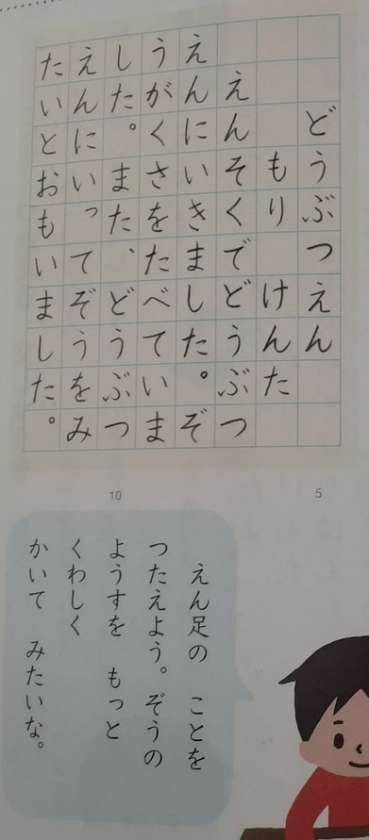 どうぶつえん
もり けんた
えんそくでどうぶつ
えんにいきました。ぞ
うがくさをたべていま
した。また、どうぶつ
えんにいって、ぞうをみ
たいとおもいました。
5
10
えん足の ことを
つたえよう。ぞうの
ようすを もっと
くわしく
かいて みたいな。